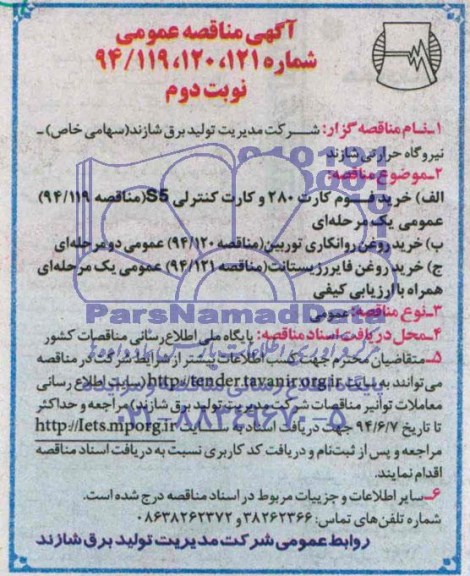 آگهی مناقصه عمومی
شماره ۱۲۱، ۱۲۰، ۹۴/۱۱۹
نوبت دوم
۱ـ نـام مناقصه گزار: شـرکت مدیریت تولید برق شازند(سهامی خاص) ـ
نیروگاه حرارتی شازند
۲ـ موضوع مناقصه:
الف) خرید فـوم کارت ۲۸۰ و کارت کنترلی S5(مناقصه ۹۴/۱۱۹)
عمومی یک مرحله‌ای
ب) خرید روغن روانکاری توربین(مناقصه ۹۴/۱۲۰) عمومی دومرحله‌ای
ج) خرید روغن فایررزیستانت(مناقصه ۹۴/۱۲۱) عمومی یک مرحله‌ای
همراه با ارزیابی کیفی
۳ـ نوع مناقصه: عمومی
ParsNamadData
۴ـ محل دریافت اسناد مناقصه: پایگاه ملی اطلاع رسانی مناقصات کشور
۵ـ متقاضیان محترم جهت کسب اطلاعات بیشتر از شرایط شرکت در مناقصه
می‌توانند به سایت http://tender.tavanir.org.ir (سایت اطلاع رسانی
معاملات توانیر مناقصات شرکت مدیریت تولید برق شازند) مراجعه و حداکثر
تا تاریخ ۹۴/۶/۷ جهت دریافت اسناد به سـایت http://Iets.mporg.ir
مراجعه و پس از ثبت‌نام و دریافت کد کاربری نسبت به دریافت اسناد مناقصه
اقدام نمایند.
۶ـ سایر اطلاعات و جزییات مربوط در اسناد مناقصه درج شده است.
شماره تلفن‌های تماس: ۳۸۲۶۲۳۶۶ و ۰۸۶۳۸۲۶۲۳۷۲
روابط عمومی شرکت مدیریت تولید برق شازند